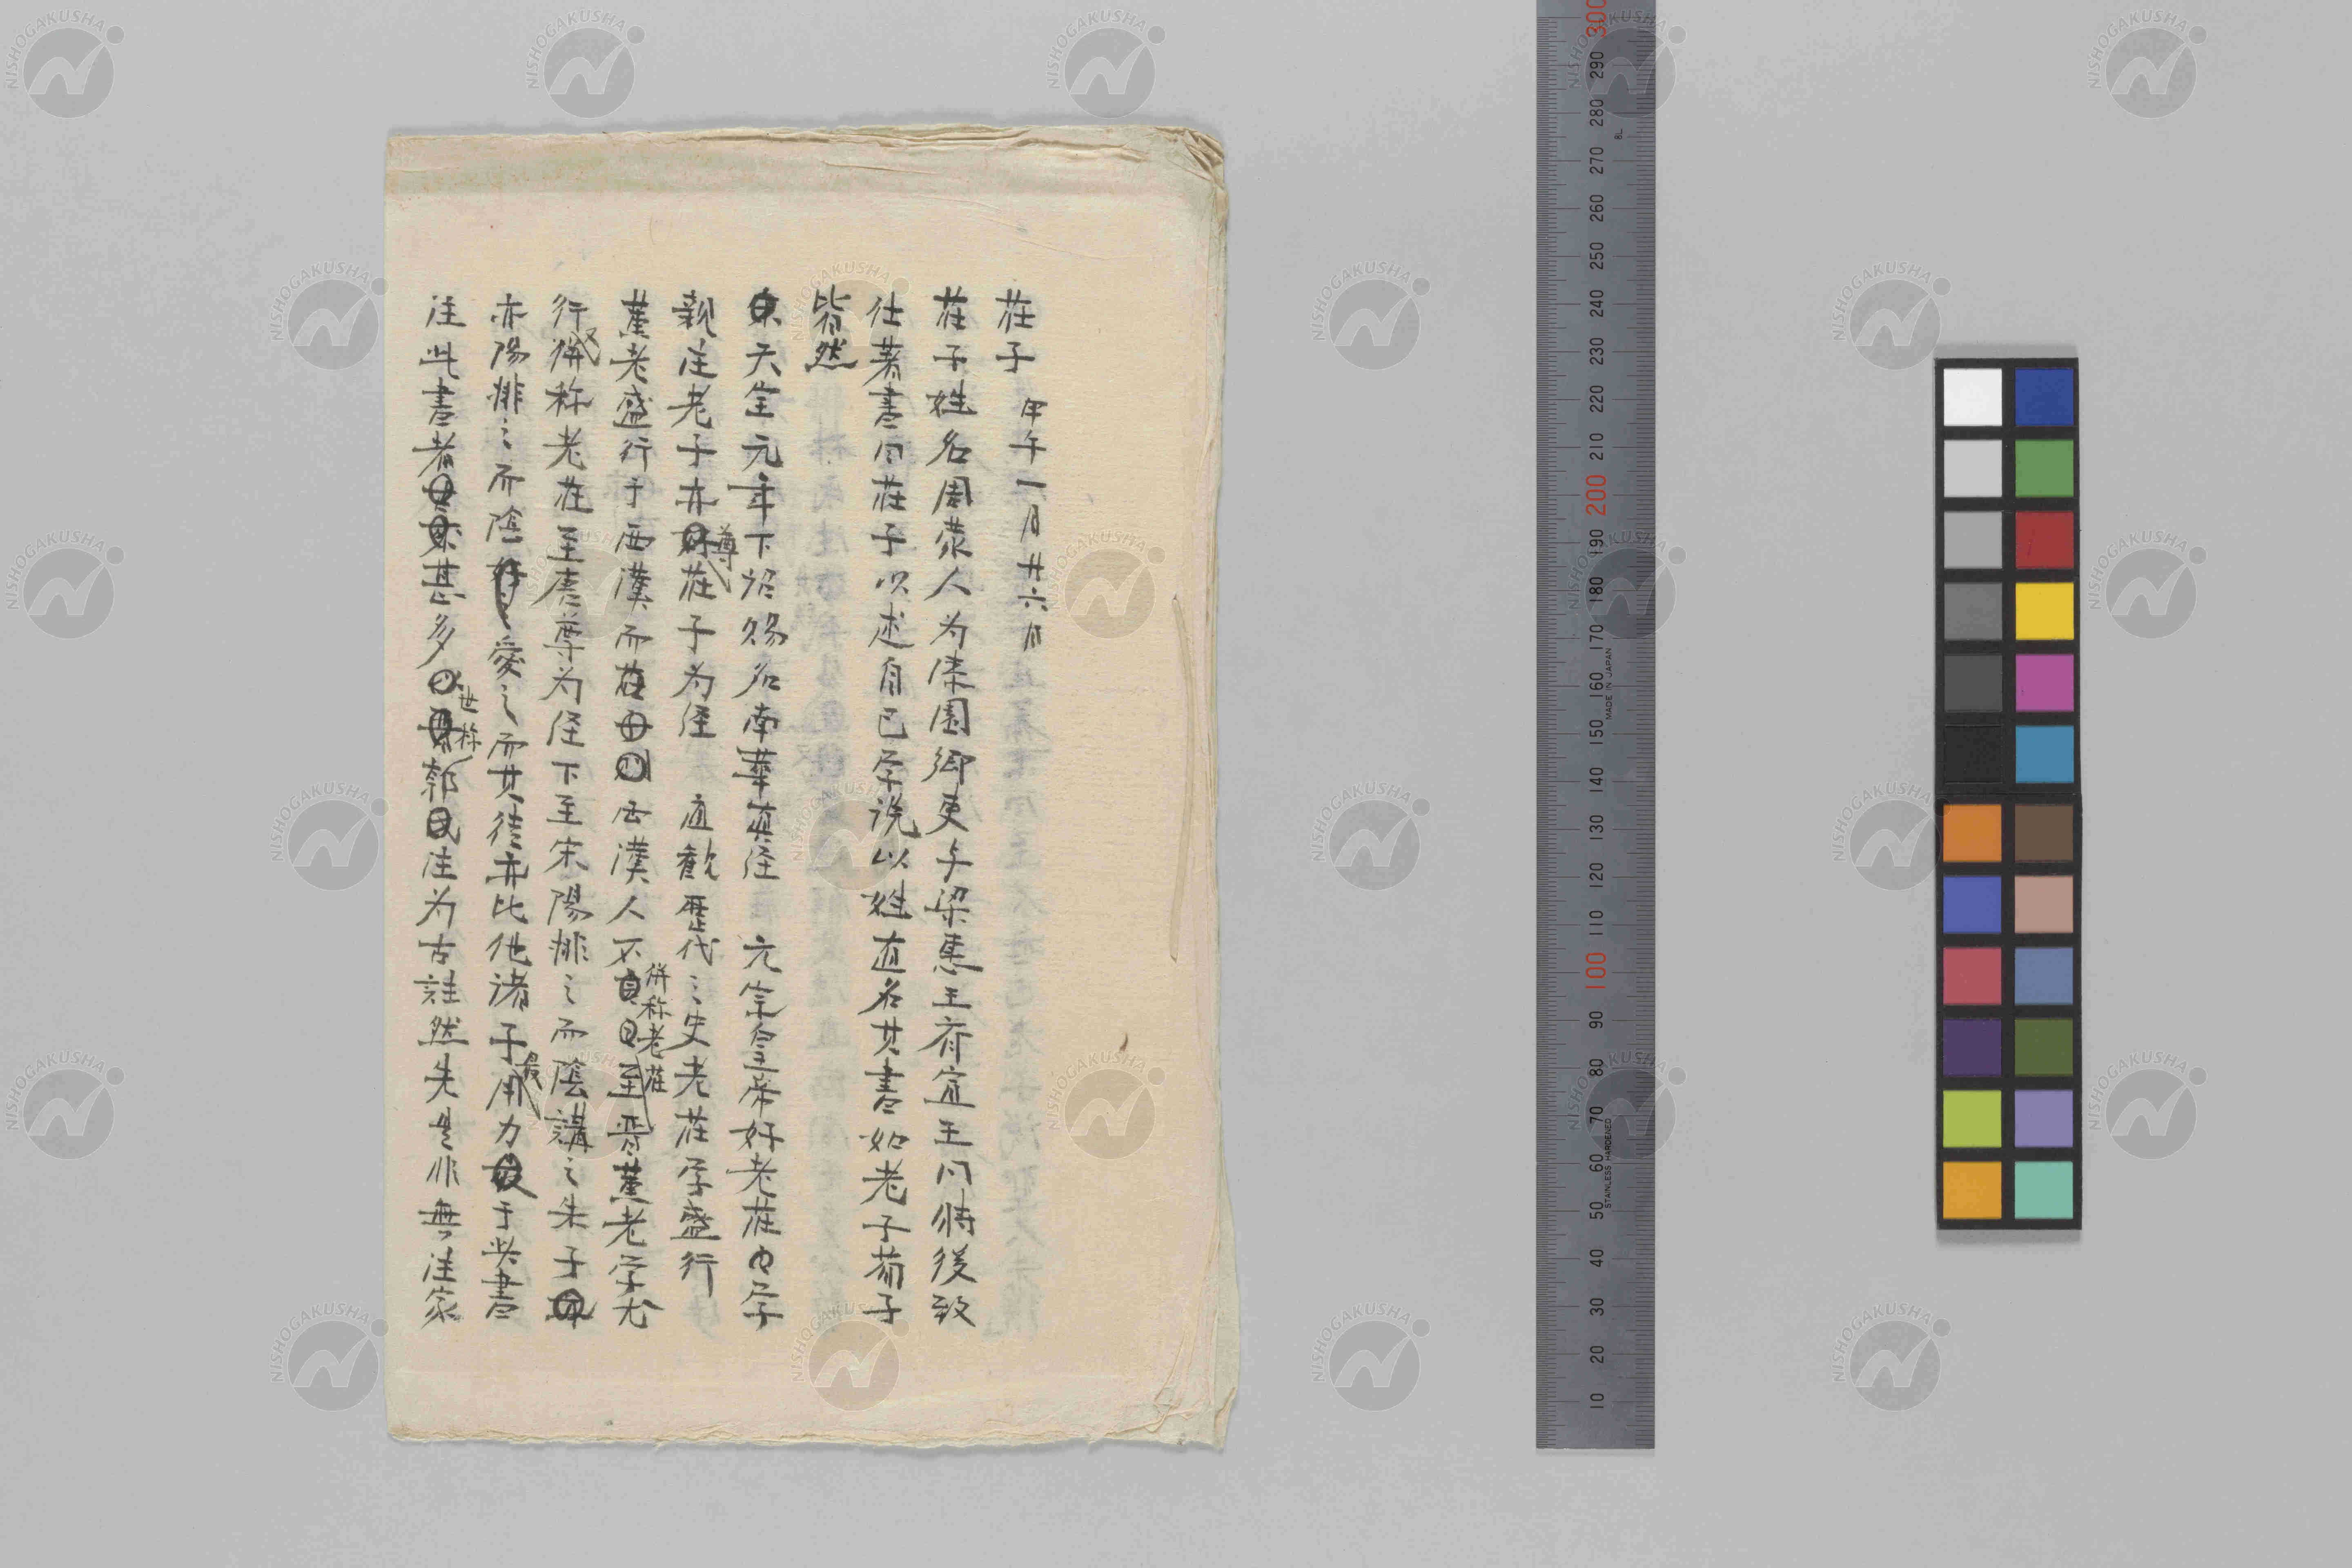 荘子 甲午一月廿六日
荘子姓名周蒙人为漆園郷吏与梁惠王斉宣王同時後致
仕著書曰荘子以述自己学説以姓直名其書如老子荀子
皆然
天宝元年下詔賜名南華真経 元宗皇帝好老荘学
親注老子亦尊荘子为経 直観歴代之史老荘学盛行
黄老盛行于西漢而 西漢人不併称老荘至晋黄老学尤
行又併称老荘至唐尊为経下至宋陽排之而陰講之朱子
亦陽排之而陰愛之而其徒亦比他諸子最用力于此書
注此書者甚多世称郭注为古註然先是非無注家
NISHOGAKUSHA
300
290
280
270
260
250
240
230
220
210
200
190
180
170
160
150
140
130
120
110
100
90
80
70
60
50
40
30
20
10
MADE IN JAPAN
STAINLESS HARDENED